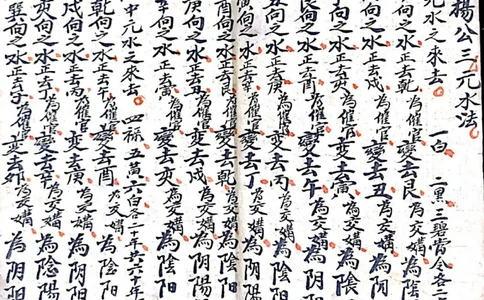 楊公三元水法
元水之來去 一白 二黑 三碧當令各二
向之水正去乾為催官變去艮為交媾為陰陽
向之水正去戌為催官變去丑為交媾為陰陽
向之水正去亥為催官變去寅為交媾為陰陽
向之水正去酉為催官變去午為交媾為陰陽
向之水正去庚為催官變去丙為交媾為陰陽
向之水正去辛為催官變去丁為交媾為陰陽
酉向之水正去艮為催官變去乾為交媾為陰陽
庚向之水正去丑為催官變去戌為交媾為陰陽
向之水正去寅為催官變去亥為交媾為陰陽
中元水之來去 四綠 五黃 六白各二十年共六十年
乾向之水正去午為催官變去酉為交媾為陰陽
戌向之水正去丙為催官變去庚為交媾為陰陽
亥向之水正去丁為催官變去辛為交媾為陰陽
巽向之水正去子為催官變去卯為交媾為陰陽